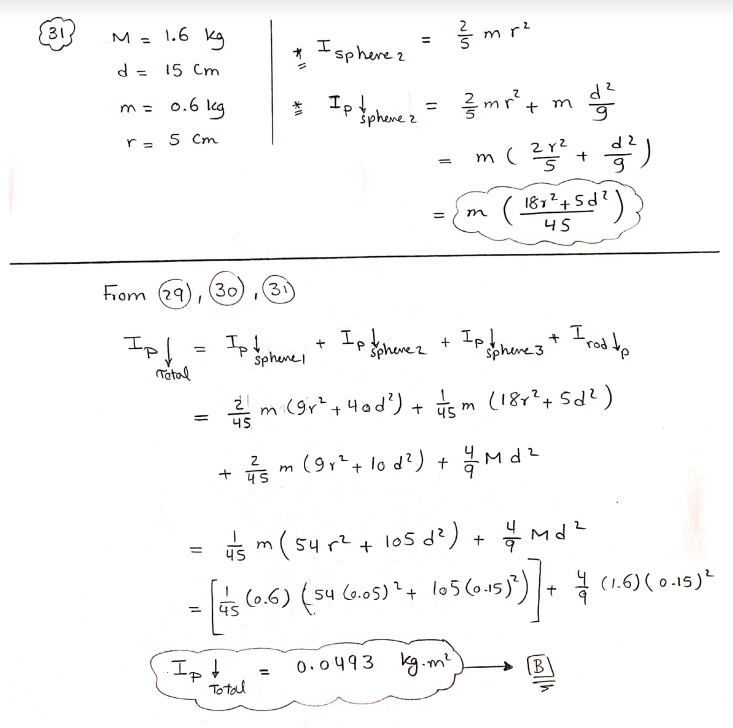 31
M = 1.6 kg
d = 15 cm
m = 0.6 kg
r = 5 cm
* I sphere 2 = 2/5 m r²
* Ip↓ sphere 2 = 2/5 m r² + m d²/9
= m ( 2r²/5 + d²/9 )
= m ( 18r² + 5d² / 45 )
From 29, 30, 31
Ip↓ Total = Ip↓ sphere 1 + Ip↓ sphere 2 + Ip↓ sphere 3 + I rod↓p
= 2/45 m (9r² + 40d²) + 1/45 m (18r² + 5d²)
+ 2/45 m (9r² + 10d²) + 4/9 M d²
= 1/45 m ( 54r² + 105d² ) + 4/9 Md²
= [ 1/45 (0.6) ( 54 (0.05)² + 105 (0.15)² ) ] + 4/9 (1.6)(0.15)²
Ip↓ Total = 0.0493 kg.m² → B